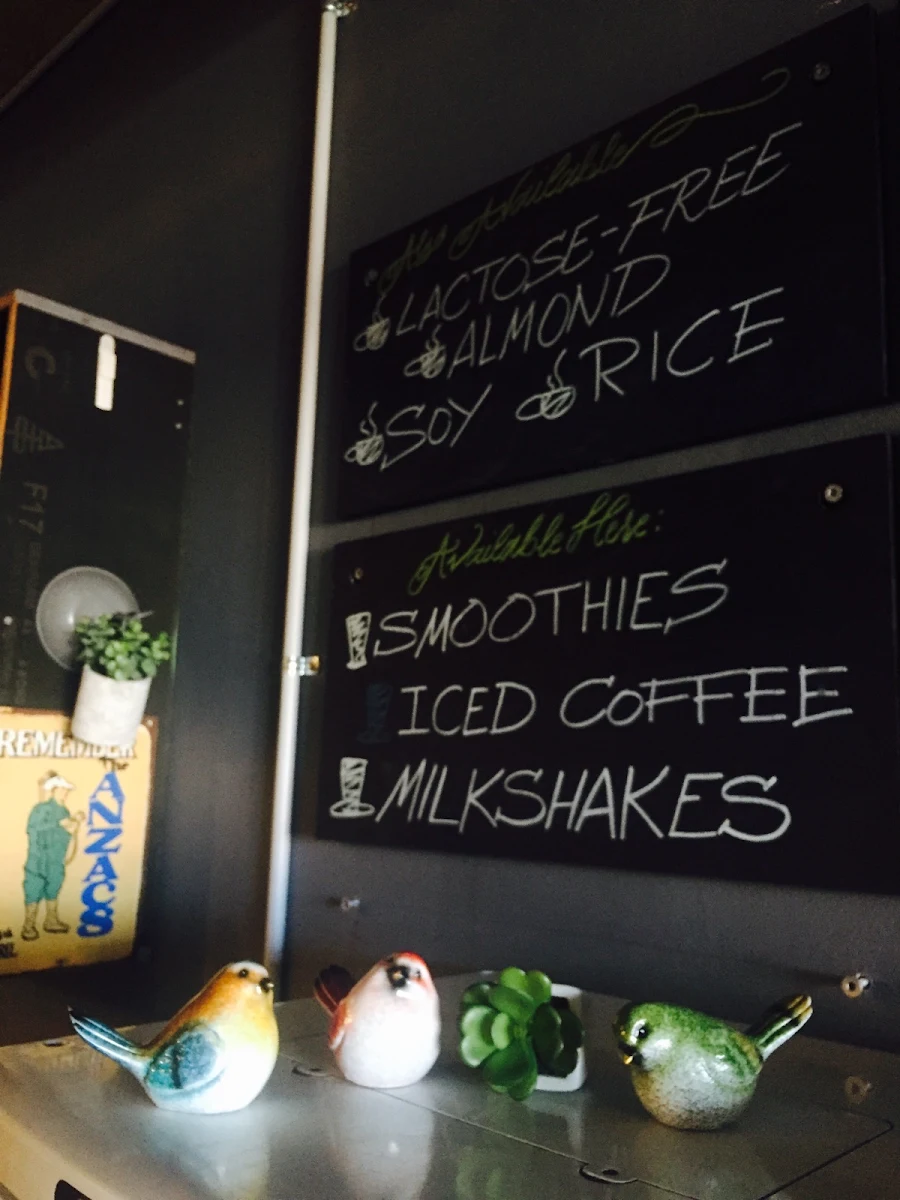 Also Available
LACTOSE-FREE
ALMOND
SOY RICE
Available Here:
SMOOTHIES
ICED COFFEE
MILKSHAKES
REMEMBER
the
ANZACS
F17